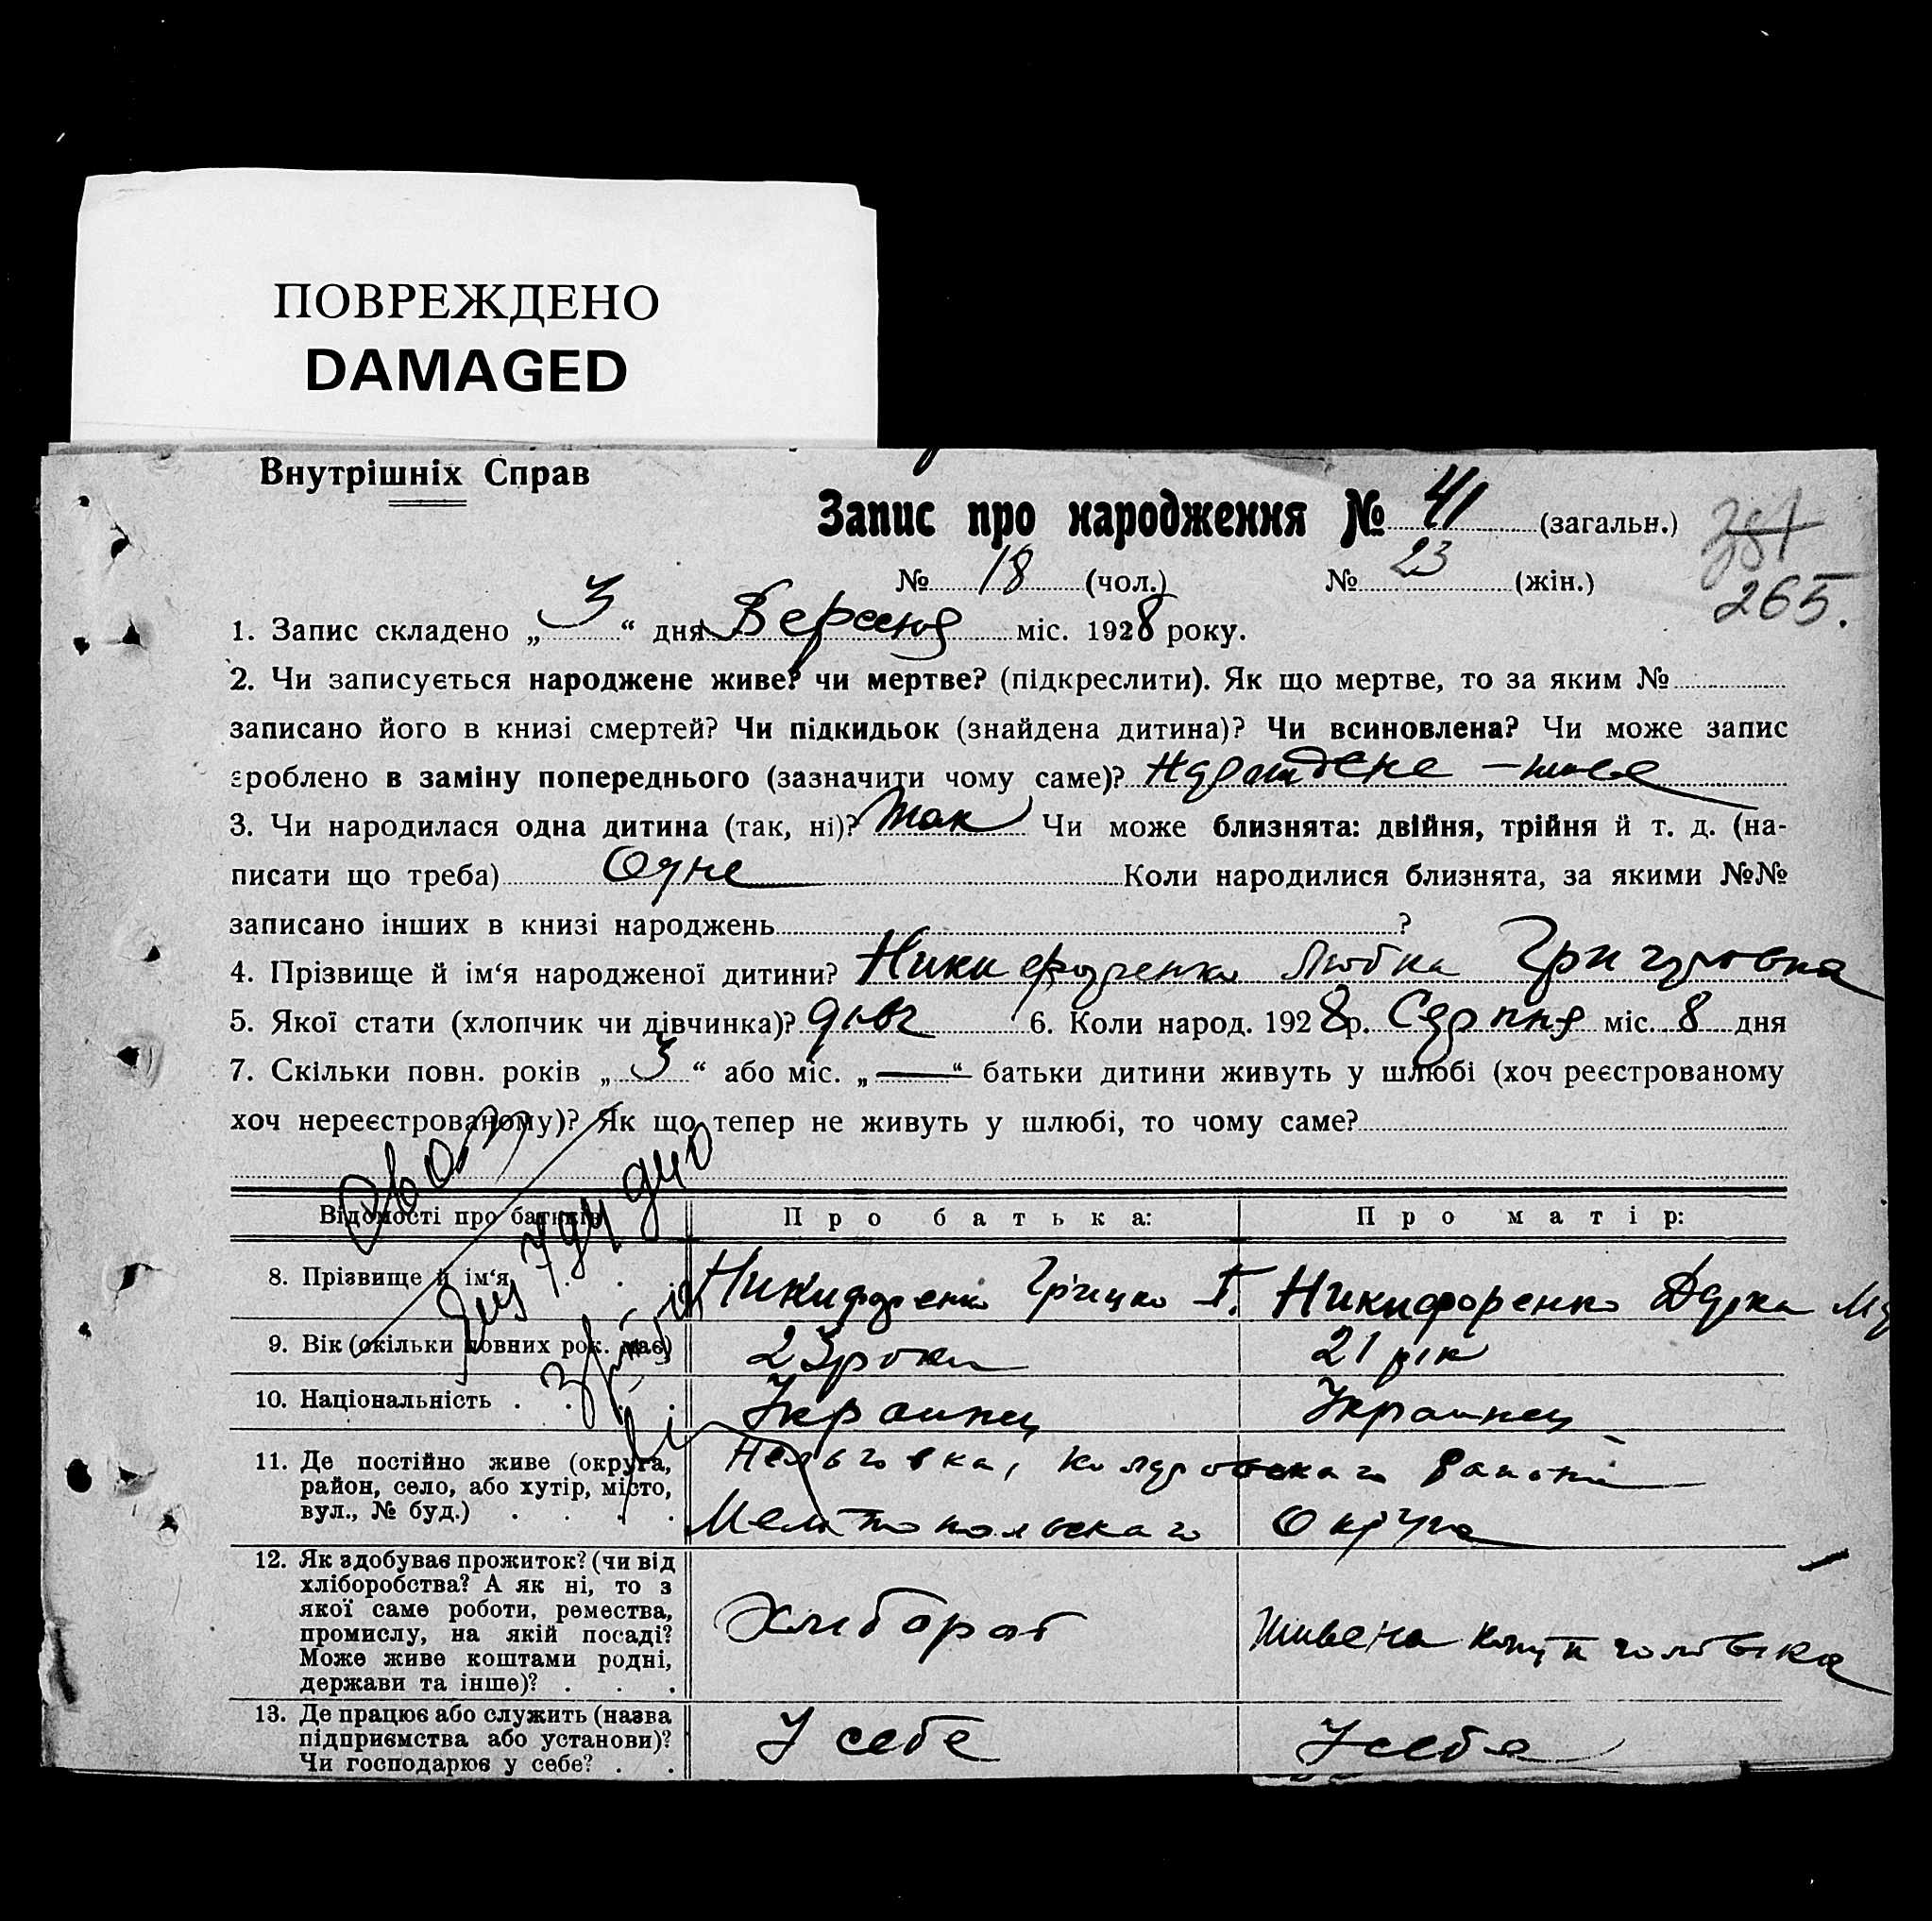 ПОВРЕЖДЕНО
DAMAGED
Внутрішніх Справ
Запис про народження № 41 (загальн.)
№ 18 (чол.) № 23 (жін.)
265.
1. Запис складено „ 3 “ дня Вересня міс. 1928 року.
2. Чи записується народжене живе? чи мертве? (підкреслити). Як що мертве, то за яким №
записано його в книзі смертей? Чи підкидьок (знайдена дитина)? Чи всиновлена? Чи може запис
зроблено в заміну попереднього (зазначити чому саме)?
3. Чи народилася одна дитина (так, ні)? Так Чи може близнята: двійня, трійня й т. д. (на-
писати що треба) Одне Коли народилися близнята, за якими №№
записано інших в книзі народжень ?
4. Прізвище й ім‘я народженої дитини? Никифоренко Любка
5. Якої стати (хлопчик чи дівчинка)? дівч 6. Коли народ. 1928р. Серпня міс. 8 дня
7. Скільки повн. років „ 3 “ або міс. „ — “ батьки дитини живуть у шлюбі (хоч реєстрованому
хоч нереєстрованому)? Як що тепер не живуть у шлюбі, то чому саме?
Відомості про батьків Про батька: Про матір:
8. Прізвище й ім‘я Никифоренко Грицко Т. Никифоренко
9. Вік (скільки повних рок. має) 23 роки 21 рік
10. Національність Украинец Украинец
11. Де постійно живе (округа,
район, село, або хутір, місто,
вул., № буд.)
Нельговка,
Мелитопольскаго Округа
12. Як здобуває прожиток? (чи від
хліборобства? А як ні, то з
якої саме роботи, ремества,
промислу, на якій посаді?
Може живе коштами родні,
держави та інше)?
Хлибороб
13. Де працює або служить (назва
підприємства або установи)?
Чи господарює у себе?
У себе У себя